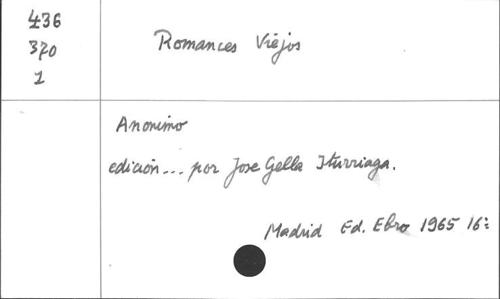 436
370
1
Romances Viejos
Anonimo
edición... por Jose Gella Iturriaga.
Madrid Ed. Ebro 1965 16: